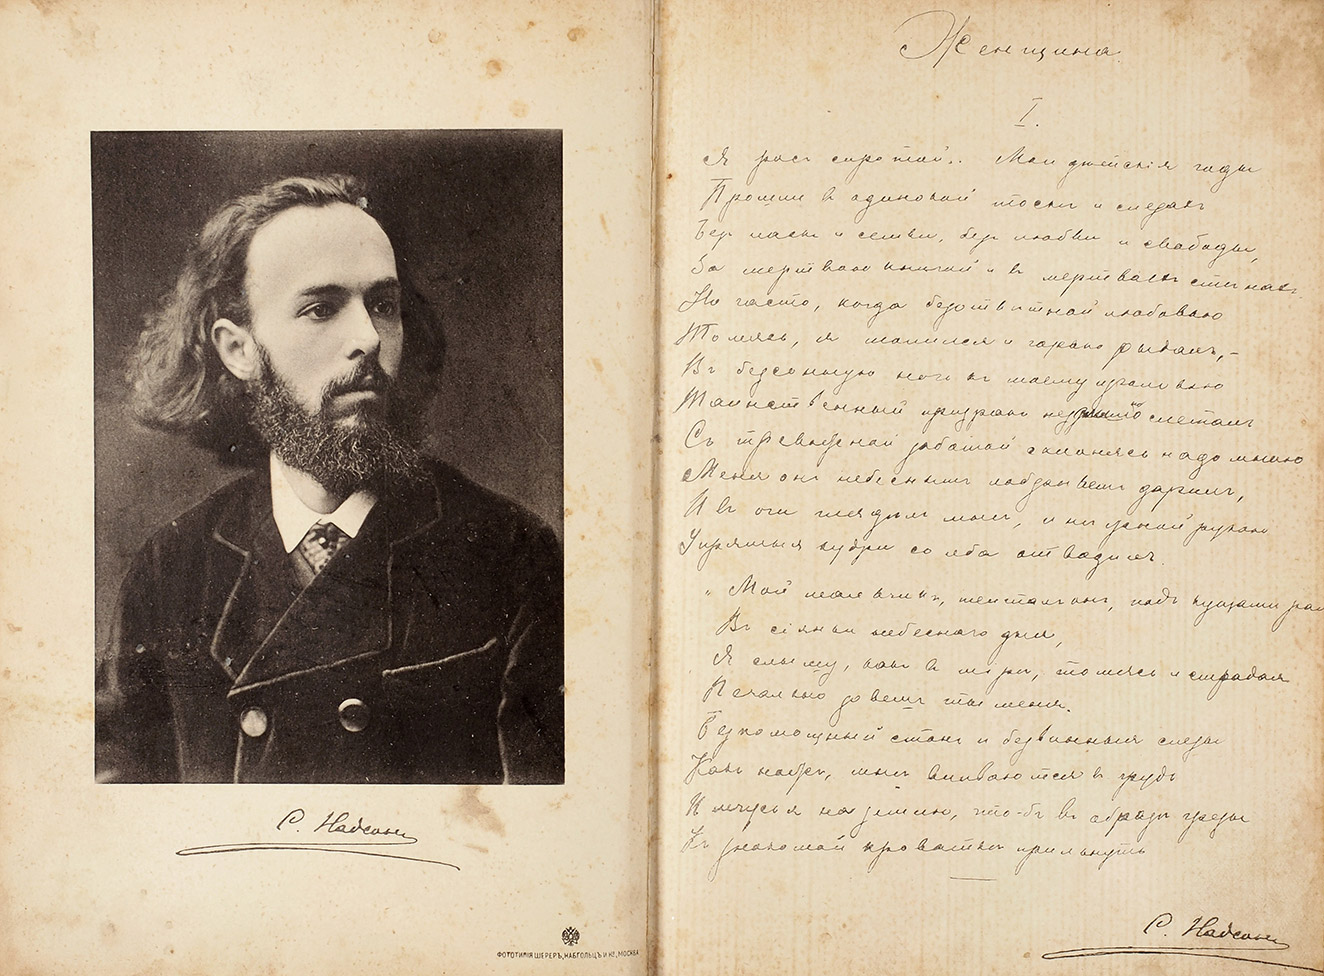 С. Надсонъ
ФОТОТИПІЯ ШЕРЕРЪ, НАБГОЛЬЦЪ И Кº, МОСКВА
Женщина.
I.
Я росъ сиротой.. Мои дѣтскія годы
Прошли в одинокой тоскѣ и слезахъ
Безъ ласкъ и семьи, безъ любви и свободы,
За мертвою книгой и в мертвыхъ стѣнахъ.
Но часто, когда безотвѣтной любовью
Томясь, я молился и горько рыдалъ, –
Въ безсонную ночь къ моему изголовью
Таинственный призракъ слеталъ
Съ тревожной заботой склонясь надо мною
Меня онъ небеснымъ лобзаньемъ дарилъ,
И въ очи глядѣлъ мнѣ, и нѣжной рукою
Упрямыя кудри со лба отводилъ.
„Мой мальчикъ, шепталъ онъ, подъ кущами
Въ сіяньи небеснаго дня,
Я слышу, какъ в мірѣ, томясь и страдая
Печально зовешь ты меня.
Безпомощный стонъ и безвинныя слезы
Какъ мнѣ впиваются в грудь
И мчусь я на землю, что-бъ в образѣ грезы
Къ знакомой кроваткѣ прильнуть
С. Надсонъ